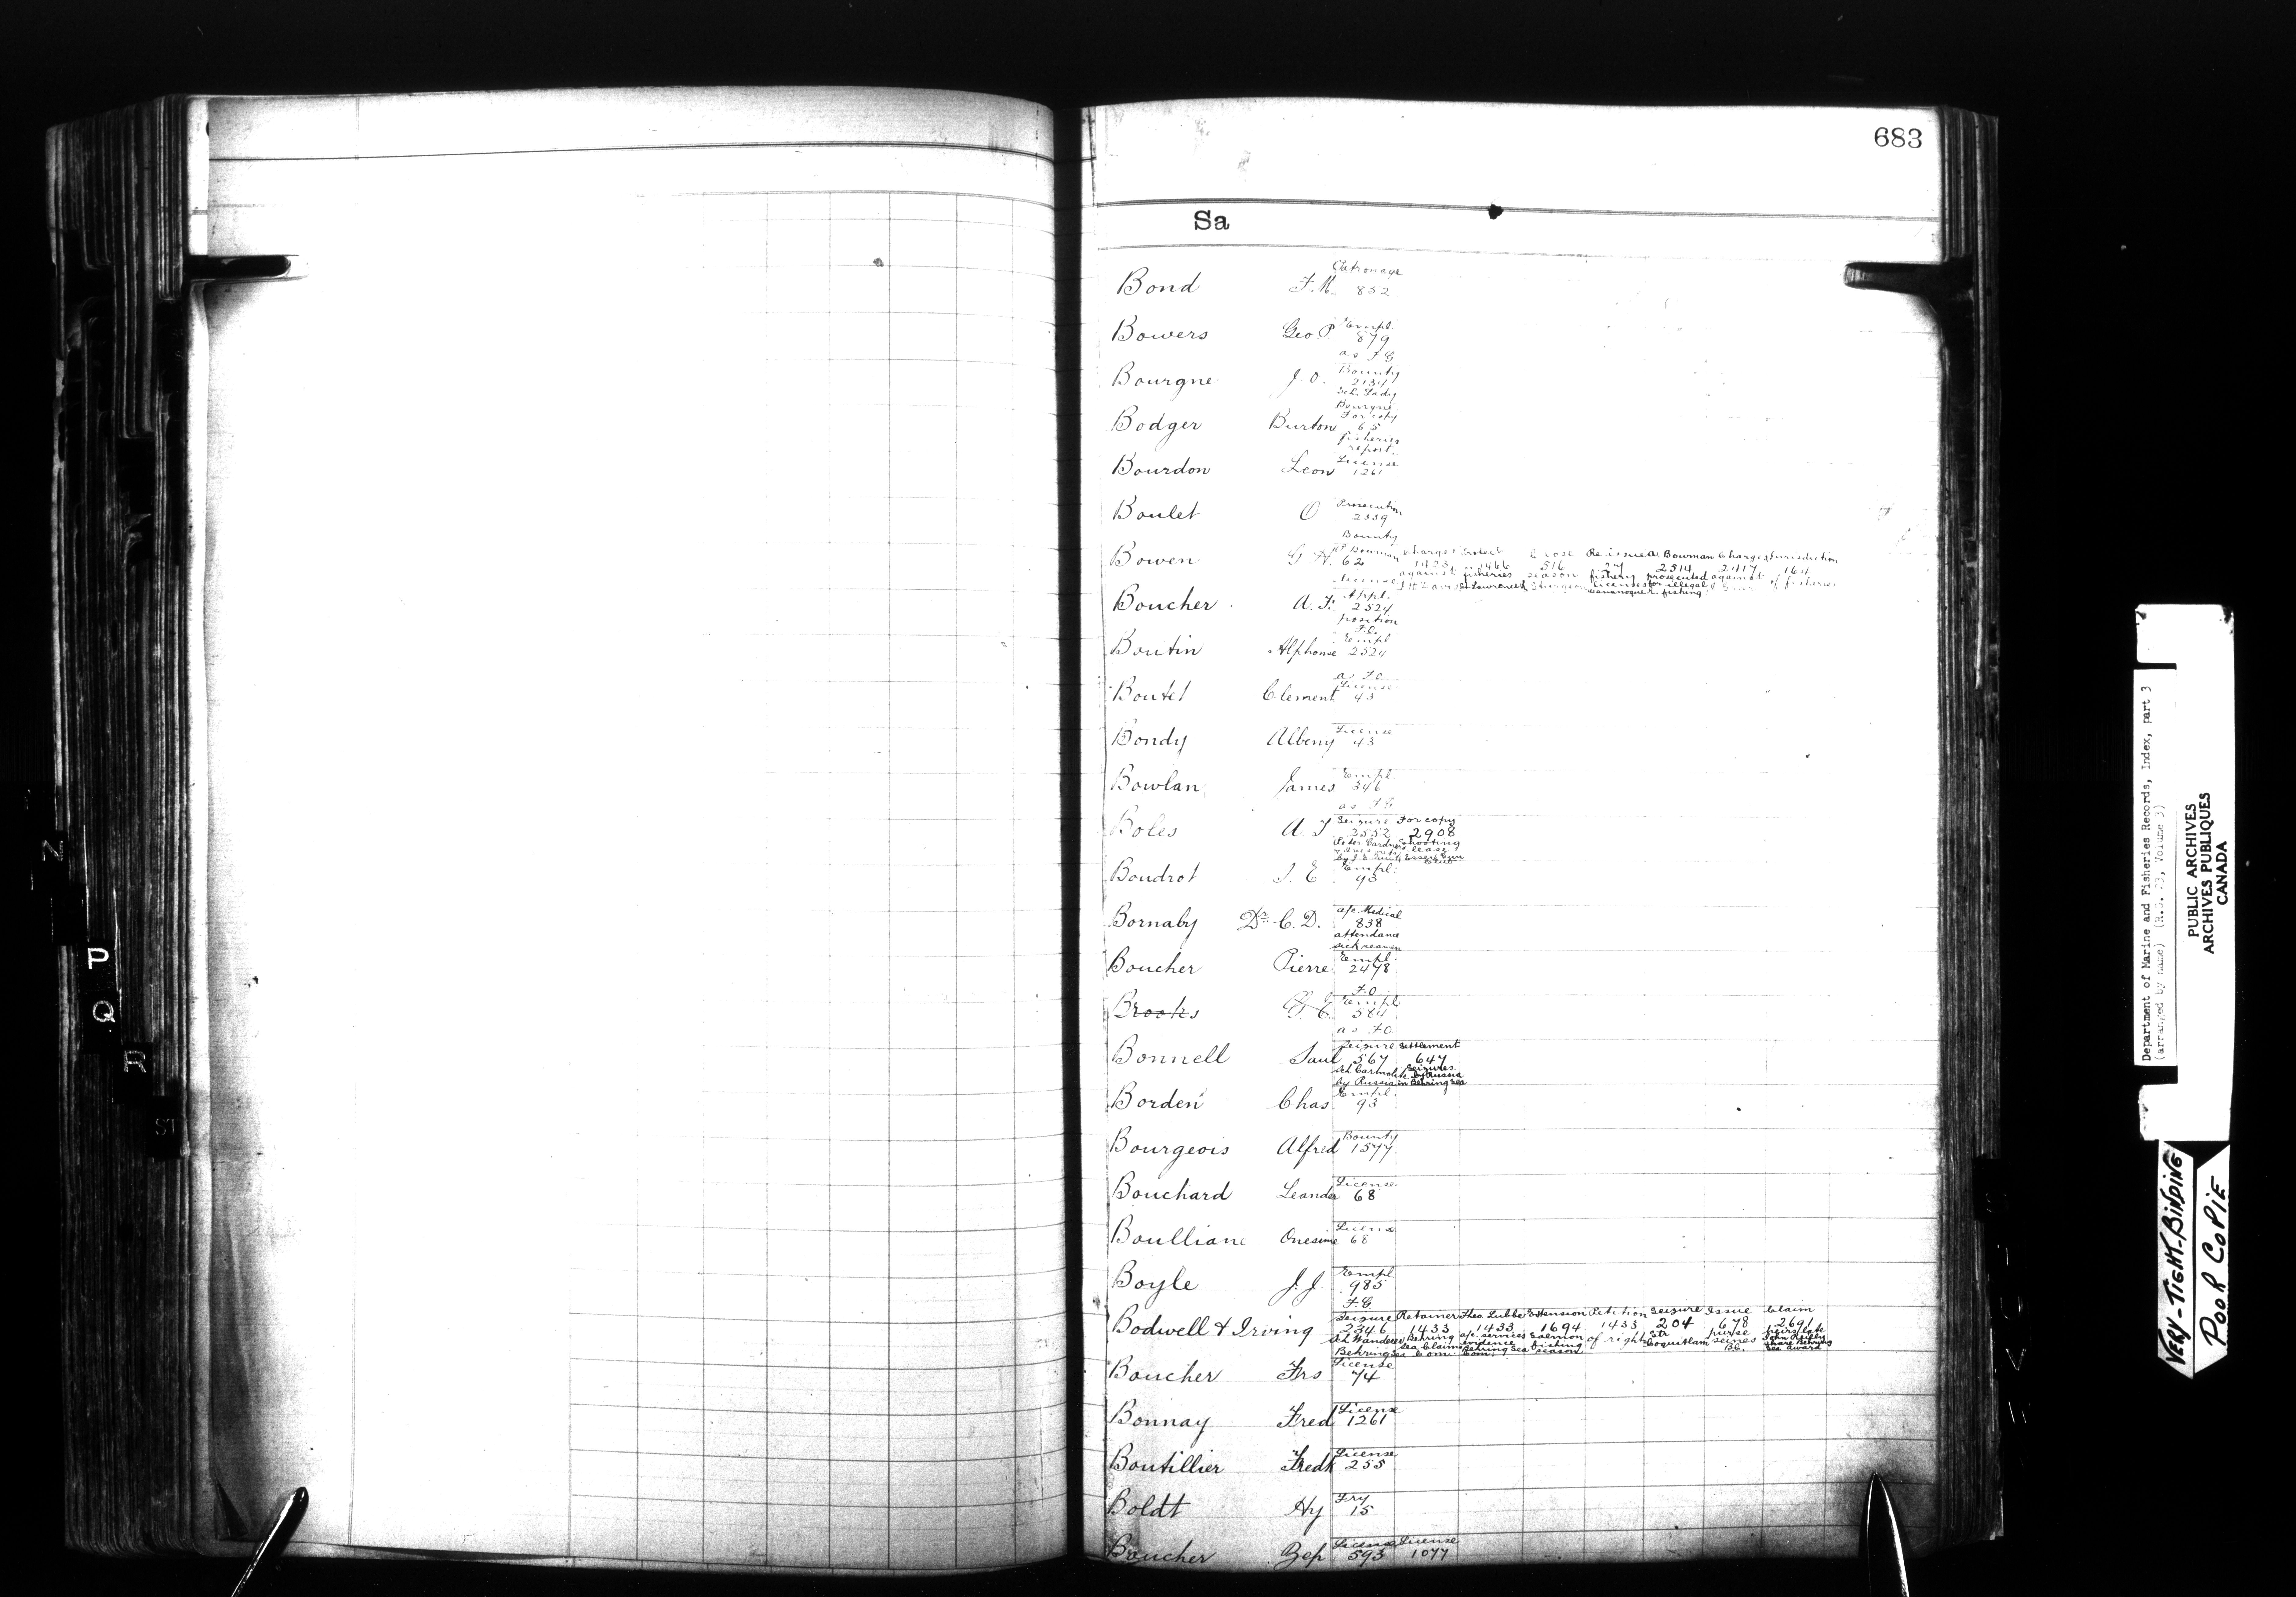 683
Sa
Patronage
Bond F. M. 852
Empl.
Bowers Geo P. 879
as F G
Bounty
Bourgne J. O. 2131
Sch. Lady
Bourgne
For copy
Bodger Burton 65
fisheries
report.
License
Bourdon Leon 1261
Prosecution
Boulet O 2339
Bounty
Bowman Charges Protect Close Re issue A. Bowman Charges Jurisdiction
Bowen G H. 62 1423 1466 516 27 2514 2417 164
against fisheries season fishery prosecuted against of fisheries
License St Lawrence Sturgeon licenses for illegal
Gananoque R. fishing
Appl.
Boucher A. F. 2524
position
F.O.
Empl
Boutin Alphonse 2524
as F.O.
License
Boutet Clement 43
License
Bondy Albeny 43
Empl.
Bowlan James 346
as F G
Seizure For copy
Boles A. T 2552 2908
Peter Gardner shooting
lease
by Essex Gun
Club
Empl.
Boudrot I. E 93
a/c. Medical
Bornaby Dr. C. D. 838
attendance
sick seamen
Empl.
Boucher Pierre 2478
F.O.
Empl
Brooks 584
as F O
Seizure Settlement
Bonnell Saul 567 647
Sch Carmolite Seizures
by Russia
by Russia in Behring Sea
Empl.
Borden Chas. 93
Bounty
Bourgeois Alfred 1577
License
Bouchard Leander 68
License
Boulliane Onesime 68
Empl
Boyle J. J. 985
F. G.
Seizure Retainer Theo. Lubbe Extension Petition Seizure Issue Claim
Bodwell & Irving 2346 1433 1433 1694 1433 204 678 2691
Sch Wanderer Behring a/c. services salmon of right Str purse heirs late
Sea Claims evidence fishing Coquitlam seines John Reilly
Behring Sea Com. Behring Sea season B.C. share Behring
Com. Sea award
License
Boucher Frs 74
License
Bonnay Fred 1261
License
Boutillier Fredk 255
Fry
Boldt Hy 15
License License
Boucher Zep 593 1077
N
P
Q
R
ST
Department of Marine and Fisheries Records, Index, part 3
(arranged by name) (R.G. 23, Volume 3)
PUBLIC ARCHIVES
ARCHIVES PUBLIQUES
CANADA
VERY-TIGHT-BINDING
POOR COPIE